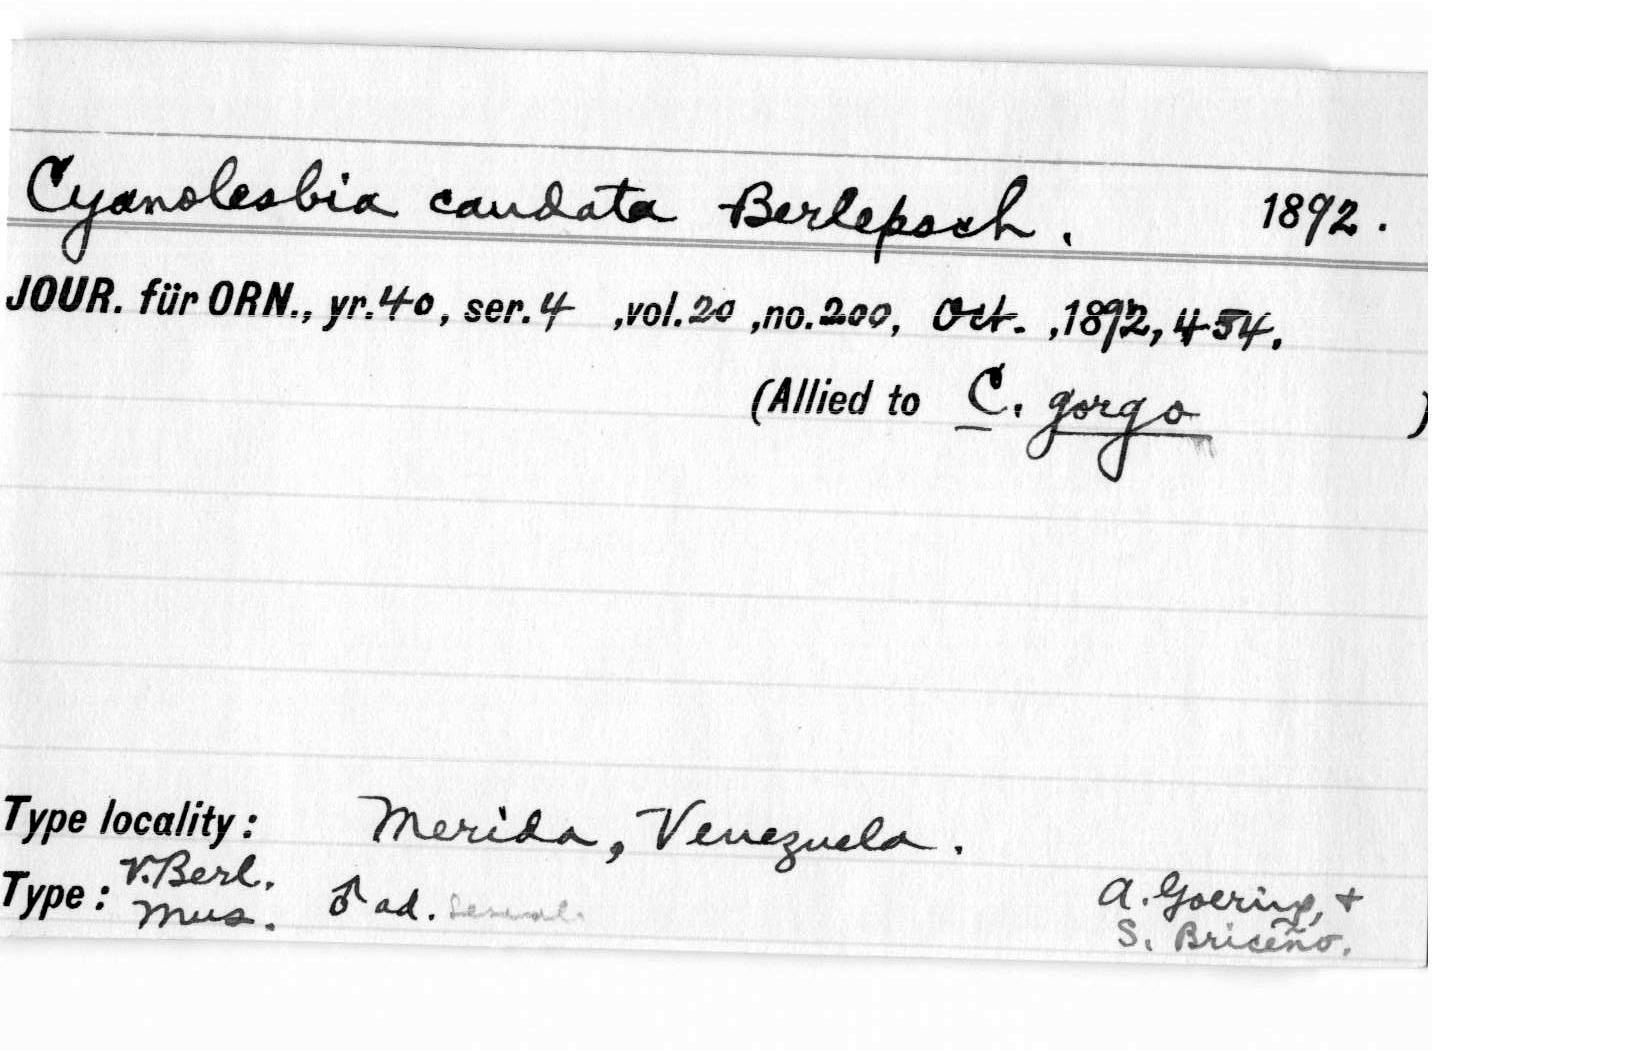 Cyanolesbia caudata Berlepsch. 1892.
JOUR. für ORN., yr.40, ser.4 ,vol.20 ,no.200, Oct. ,1892, 454.
(Allied to C. gorgo )
Type locality: Merida, Venezuela.
Type: V.Berl. Mus. ♂ ad. A. Goering, +
S. Briceño.